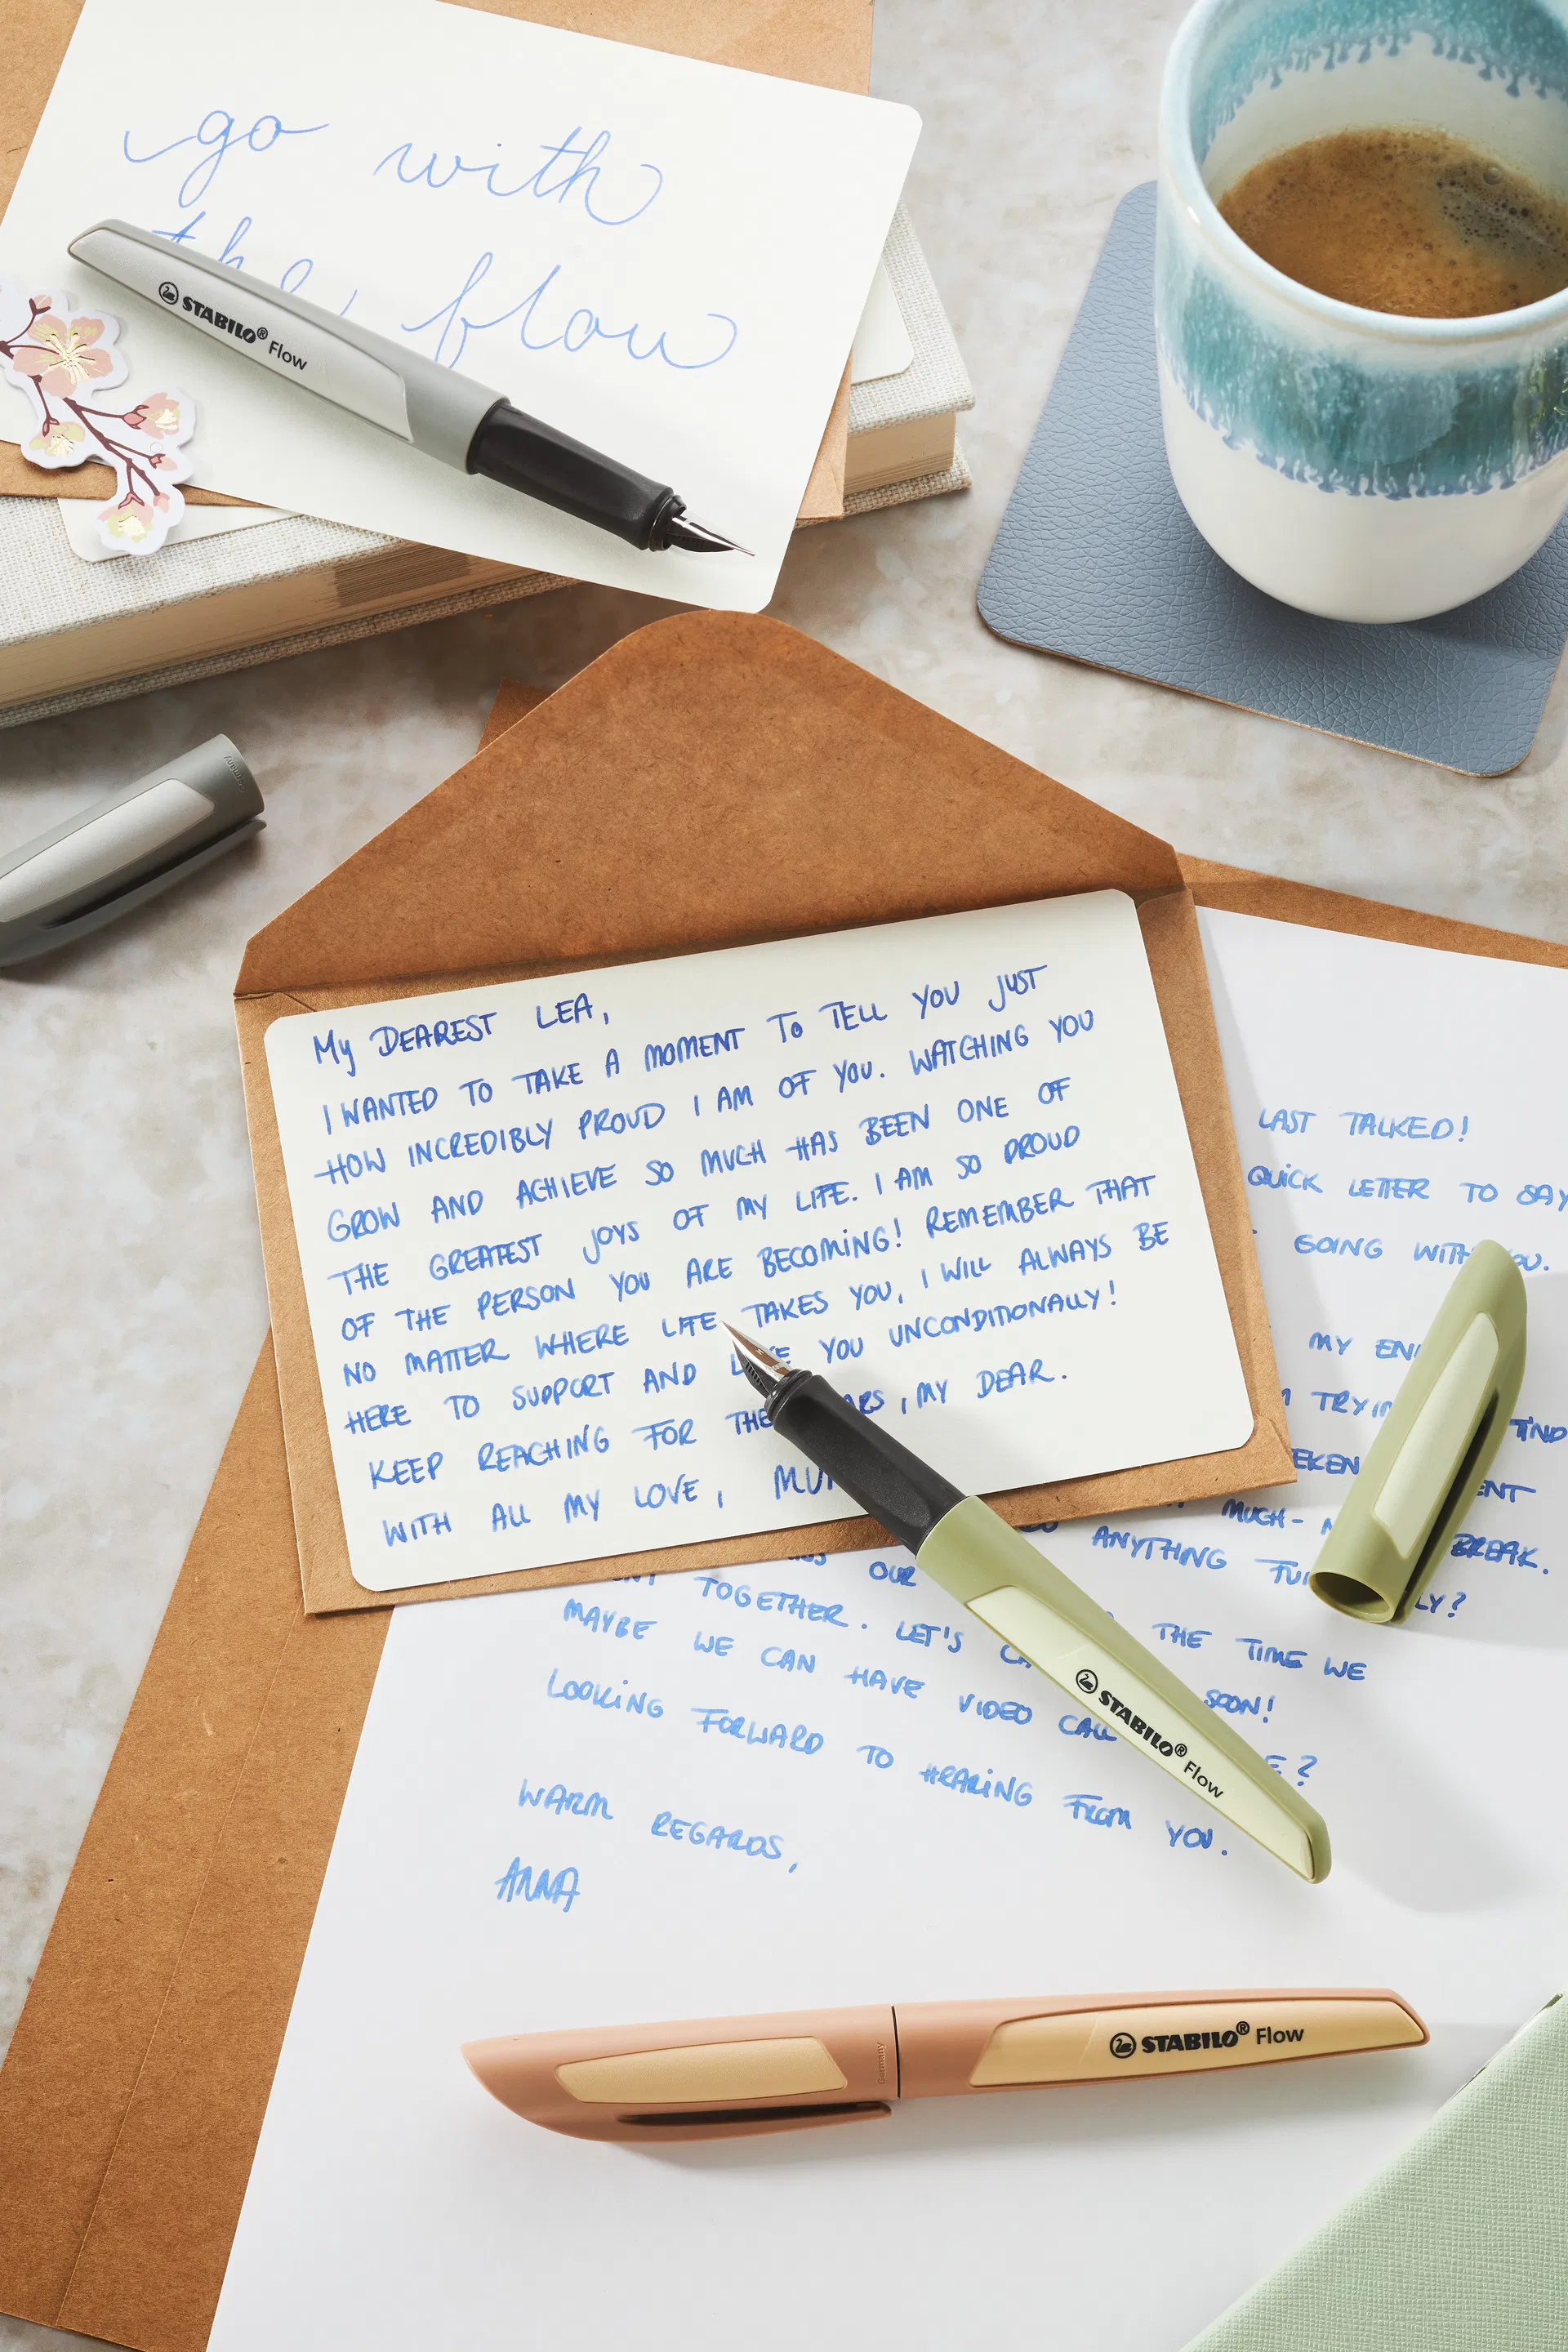 go with
the flow
STABILO® Flow
My DEAREST LEA,
I WANTED TO TAKE A MOMENT TO TELL YOU JUST
HOW INCREDIBLY PROUD I AM OF YOU. WATCHING YOU
GROW AND ACHIEVE SO MUCH HAS BEEN ONE OF
THE GREATEST JOYS OF MY LIFE. I AM SO PROUD
OF THE PERSON YOU ARE BECOMING! REMEMBER THAT
NO MATTER WHERE LIFE TAKES YOU, I WILL ALWAYS BE
HERE TO SUPPORT AND YOU UNCONDITIONALLY!
KEEP REACHING FOR , MY DEAR.
WITH ALL MY LOVE,
LAST TALKED!
QUICK LETTER TO SAY
GOING WITH
MY
MUCH-
BREAK.
ANYTHING
OUR
TOGETHER. LET'S THE TIME WE
MAYBE WE CAN HAVE VIDEO CALL SOON!
LOOKING FORWARD TO HEARING FROM YOU.
WARM REGARDS,
ANNA
STABILO® Flow
Germany STABILO® Flow